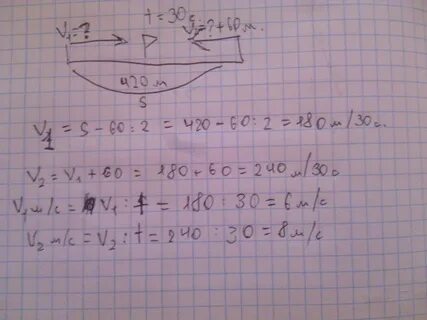 t = 30с
V₁ = ? V₂ = ? + 60 м.
420 м
S
V₁ = S - 60 : 2 = 420 - 60 : 2 = 180 м/30с.
V₂ = V₁ + 60 = 180 + 60 = 240 м/30с
V₁ м/с = V₁ : t = 180 : 30 = 6 м/с
V₂ м/с = V₂ : t = 240 : 30 = 8 м/с